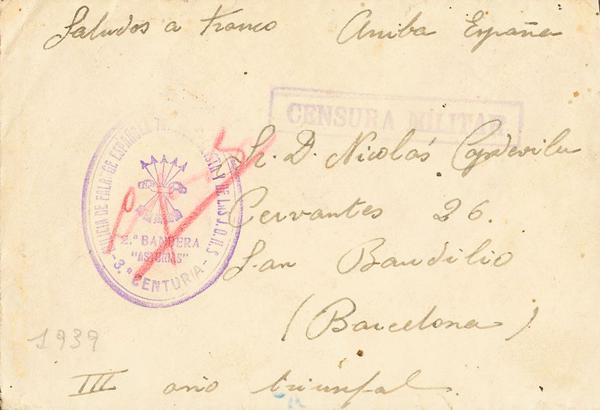 Saludos a Franco Arriba España
CENSURA MILITAR
MILICIA DE FALANGE ESPAÑOLA TRADICIONALISTA Y DE LAS J.O.N.S
2.ª BANDERA
"ASTURIAS"
-3.ª CENTURIA-
Sr. D. Nicolás Capdevila
Cervantes 26.
San Baudilio
(Barcelona)
1939
III año triunfal.